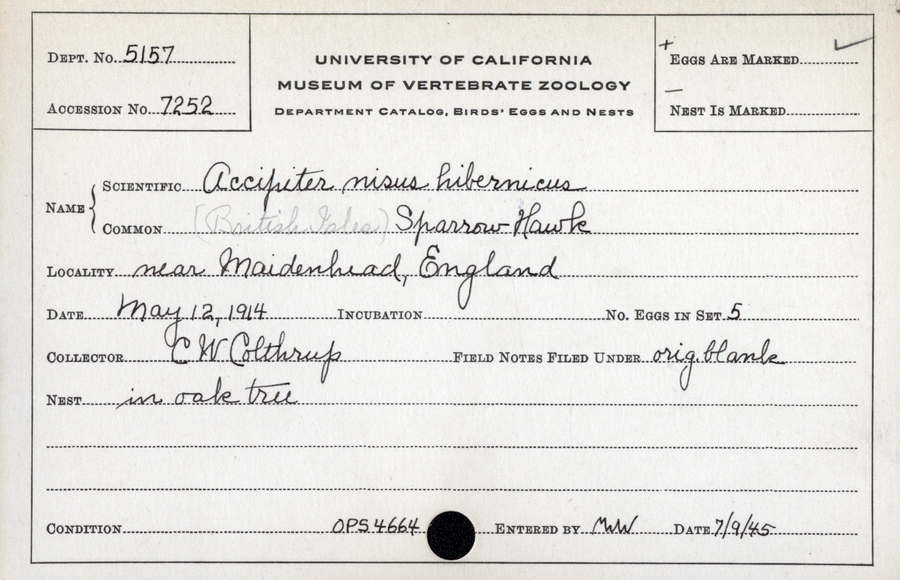 Dept. No. 5157
Accession No. 7252
UNIVERSITY OF CALIFORNIA
MUSEUM OF VERTEBRATE ZOOLOGY
Department Catalog, Birds' Eggs and Nests
+ Eggs Are Marked ✓
— Nest Is Marked
Name { Scientific Accipiter nisus hibernicus
Common (British Isles) Sparrow Hawk
Locality near Maidenhead, England
Date May 12, 1914 Incubation No. Eggs in Set 5
Collector C W Colthrup Field Notes Filed Under orig. blank
Nest in oak tree
Condition OPS4664 Entered by MWW Date 7/9/45